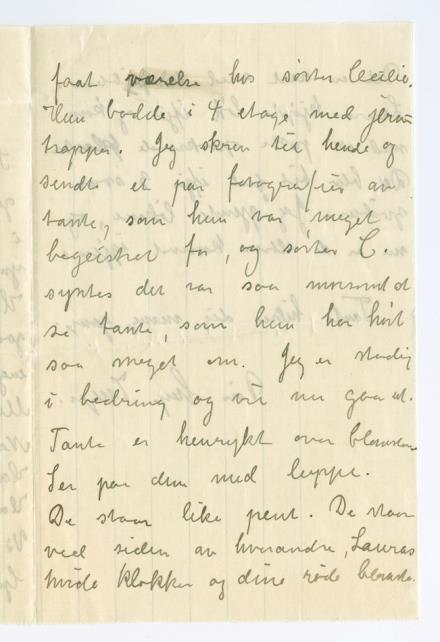 faat værelse hos søster Cecilie.
Hun bodde i 4 etage med jern
trapper. Jeg skrev til hende og
sendte et par fotografier av
tante, som hun var meget
begeistret for, og søster C.
syntes det var saa morsomt at
se tante, som hun har hørt
saa meget om. Jeg er stadig
i bedring og vil nu gaa ut.
Tante er henrykt over blomsten
Ser paa dem med luppe.
De staar like pent. De staar
ved siden av hverandre, Lauras
hvide klokker og dine røde blomster.